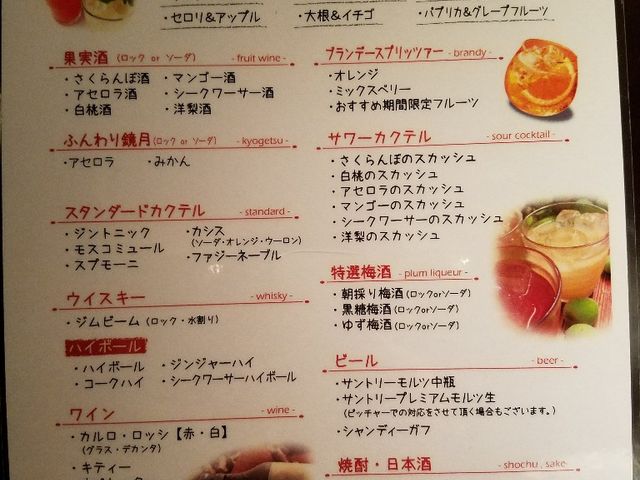 ・セロリ&アップル
・大根&イチゴ
・パプリカ&グレープフルーツ
果実酒(ロック or ソーダ) - fruit wine -
・さくらんぼ酒 ・マンゴー酒
・アセロラ酒 ・シークワーサー酒
・白桃酒 ・洋梨酒
ふんわり鏡月(ロック or ソーダ) - kyogetsu -
・アセロラ ・みかん
スタンダードカクテル - standard -
・ジントニック ・カシス
(ソーダ・オレンジ・ウーロン)
・モスコミュール
・スプモーニ ・ファジーネーブル
ウイスキー - whisky -
・ジムビーム(ロック・水割り)
ハイボール
・ハイボール ・ジンジャーハイ
・コークハイ ・シークワーサーハイボール
ワイン - wine -
・カルロ・ロッシ【赤・白】
(グラス・デカンタ)
・キティー
ブランデースプリッツァー - brandy -
・オレンジ
・ミックスベリー
・おすすめ期間限定フルーツ
サワーカクテル - sour cocktail -
・さくらんぼのスカッシュ
・白桃のスカッシュ
・アセロラのスカッシュ
・マンゴーのスカッシュ
・シークワーサーのスカッシュ
・洋梨のスカッシュ
特選梅酒 - plum liqueur -
・朝採り梅酒(ロックorソーダ)
・黒糖梅酒(ロックorソーダ)
・ゆず梅酒(ロックorソーダ)
ビール - beer -
・サントリーモルツ中瓶
・サントリープレミアムモルツ生
(ピッチャーでの対応をさせて頂く場合もございます。)
・シャンディーガフ
焼酎・日本酒 - shochu , sake -